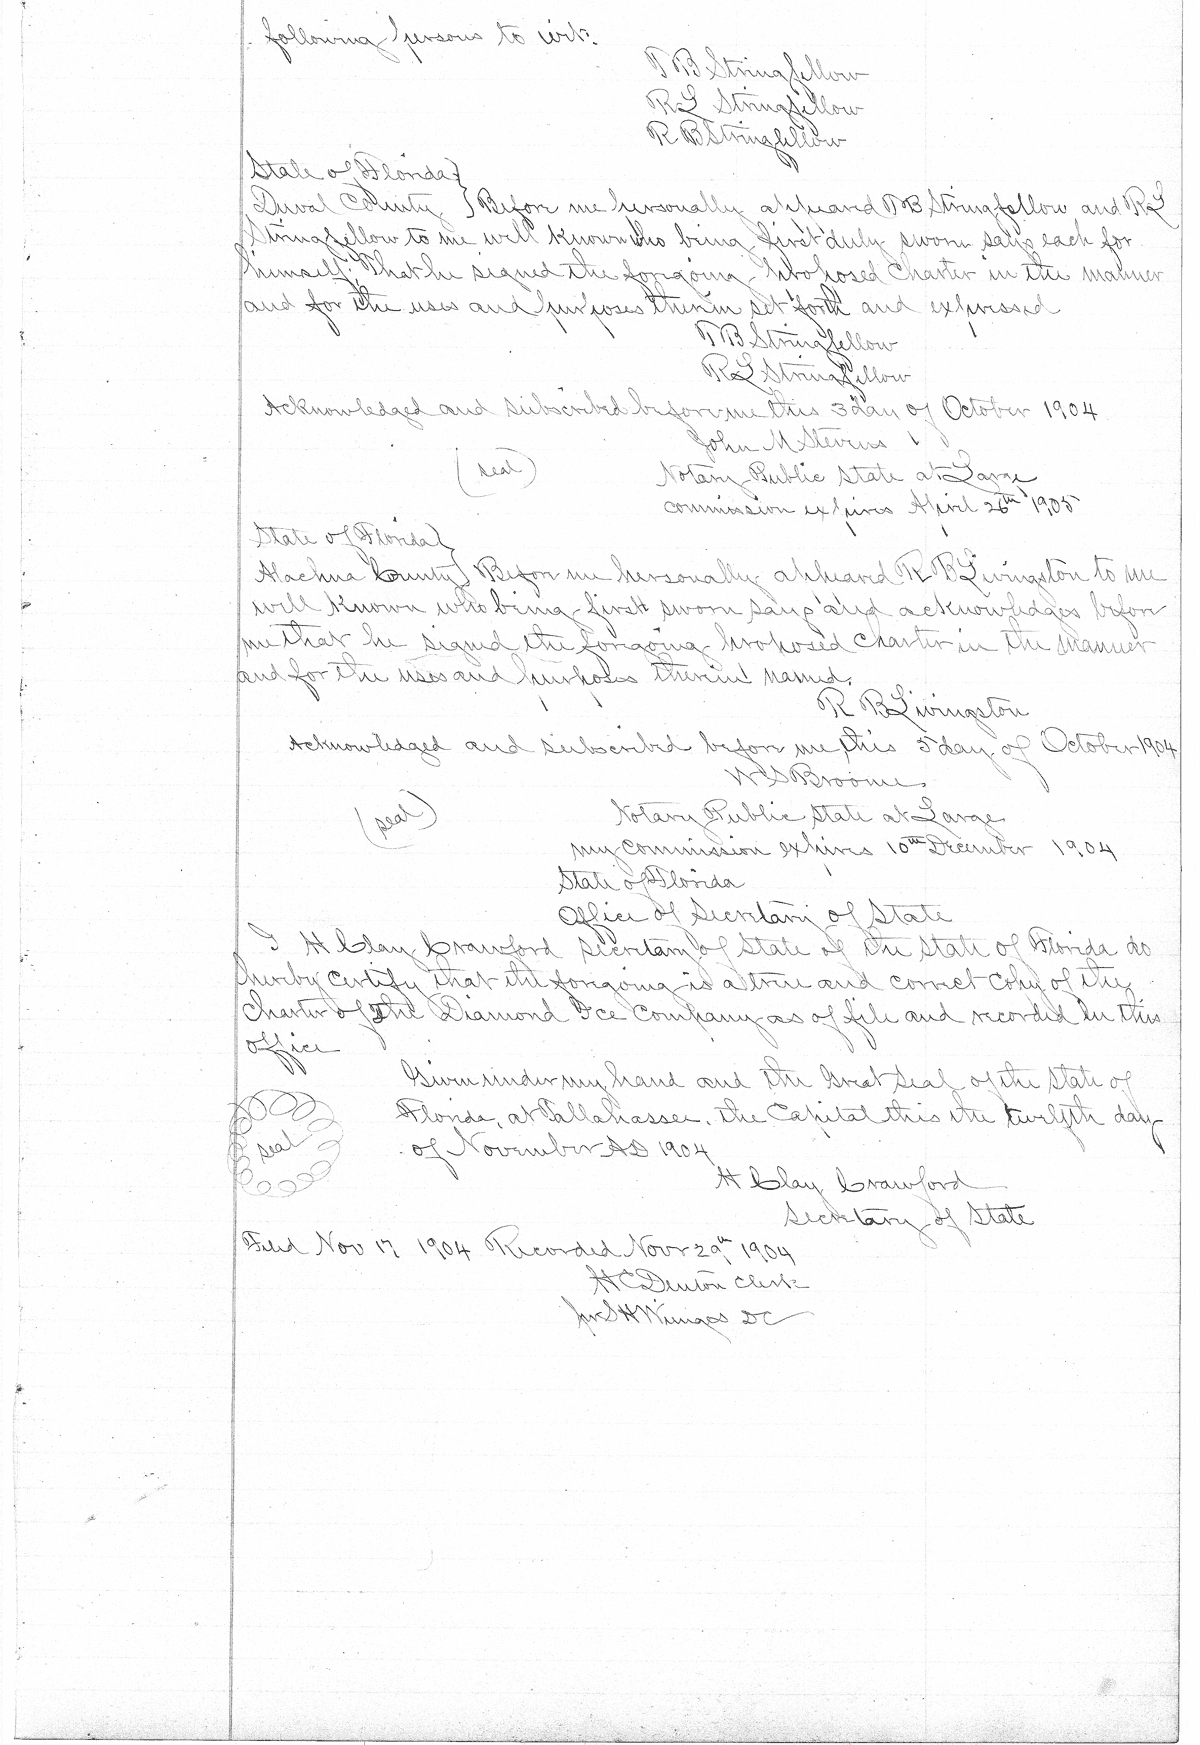 following persons to wit:
T B Stringfellow
R L Stringfellow
R B Stringfellow
State of Florida }
Duval County } Before me personally appeared T B Stringfellow and R L
Stringfellow to me well known who being first duly sworn says each for
himself: That he signed the foregoing proposed charter in the manner
and for the uses and purposes therein set forth and expressed
T B Stringfellow
R L Stringfellow
Acknowledged and subscribed before me this 3 day of October 1904
John M Stevens
(seal) Notary Public State at Large
commission expires April 26th 1905
State of Florida }
Alachua County } Before me personally appeared R B Livingston to me
well known who being first sworn says and acknowledges before
me that he signed the foregoing proposed charter in the manner
and for the uses and purposes therein named.
R B Livingston
Acknowledged and subscribed before me, this 5 day of October 1904
W S Broome
(seal) Notary Public State at Large
my commission expires 10th December 1904
State of Florida
Office of Secretary of State
I H Clay Crawford Secretary of State of the State of Florida do
hereby certify that the foregoing is a true and correct copy of the
Charter of The Diamond Ice Company as of file and recorded in this
office
Given under my hand and the Great Seal of the State of
Florida, at Tallahassee, the Capital this the twelfth day
seal of November AD 1904
H Clay Crawford
Secretary of State
Filed Nov 17 1904 Recorded Novr 29th 1904
H C Denton Clerk
S H Wienges DC